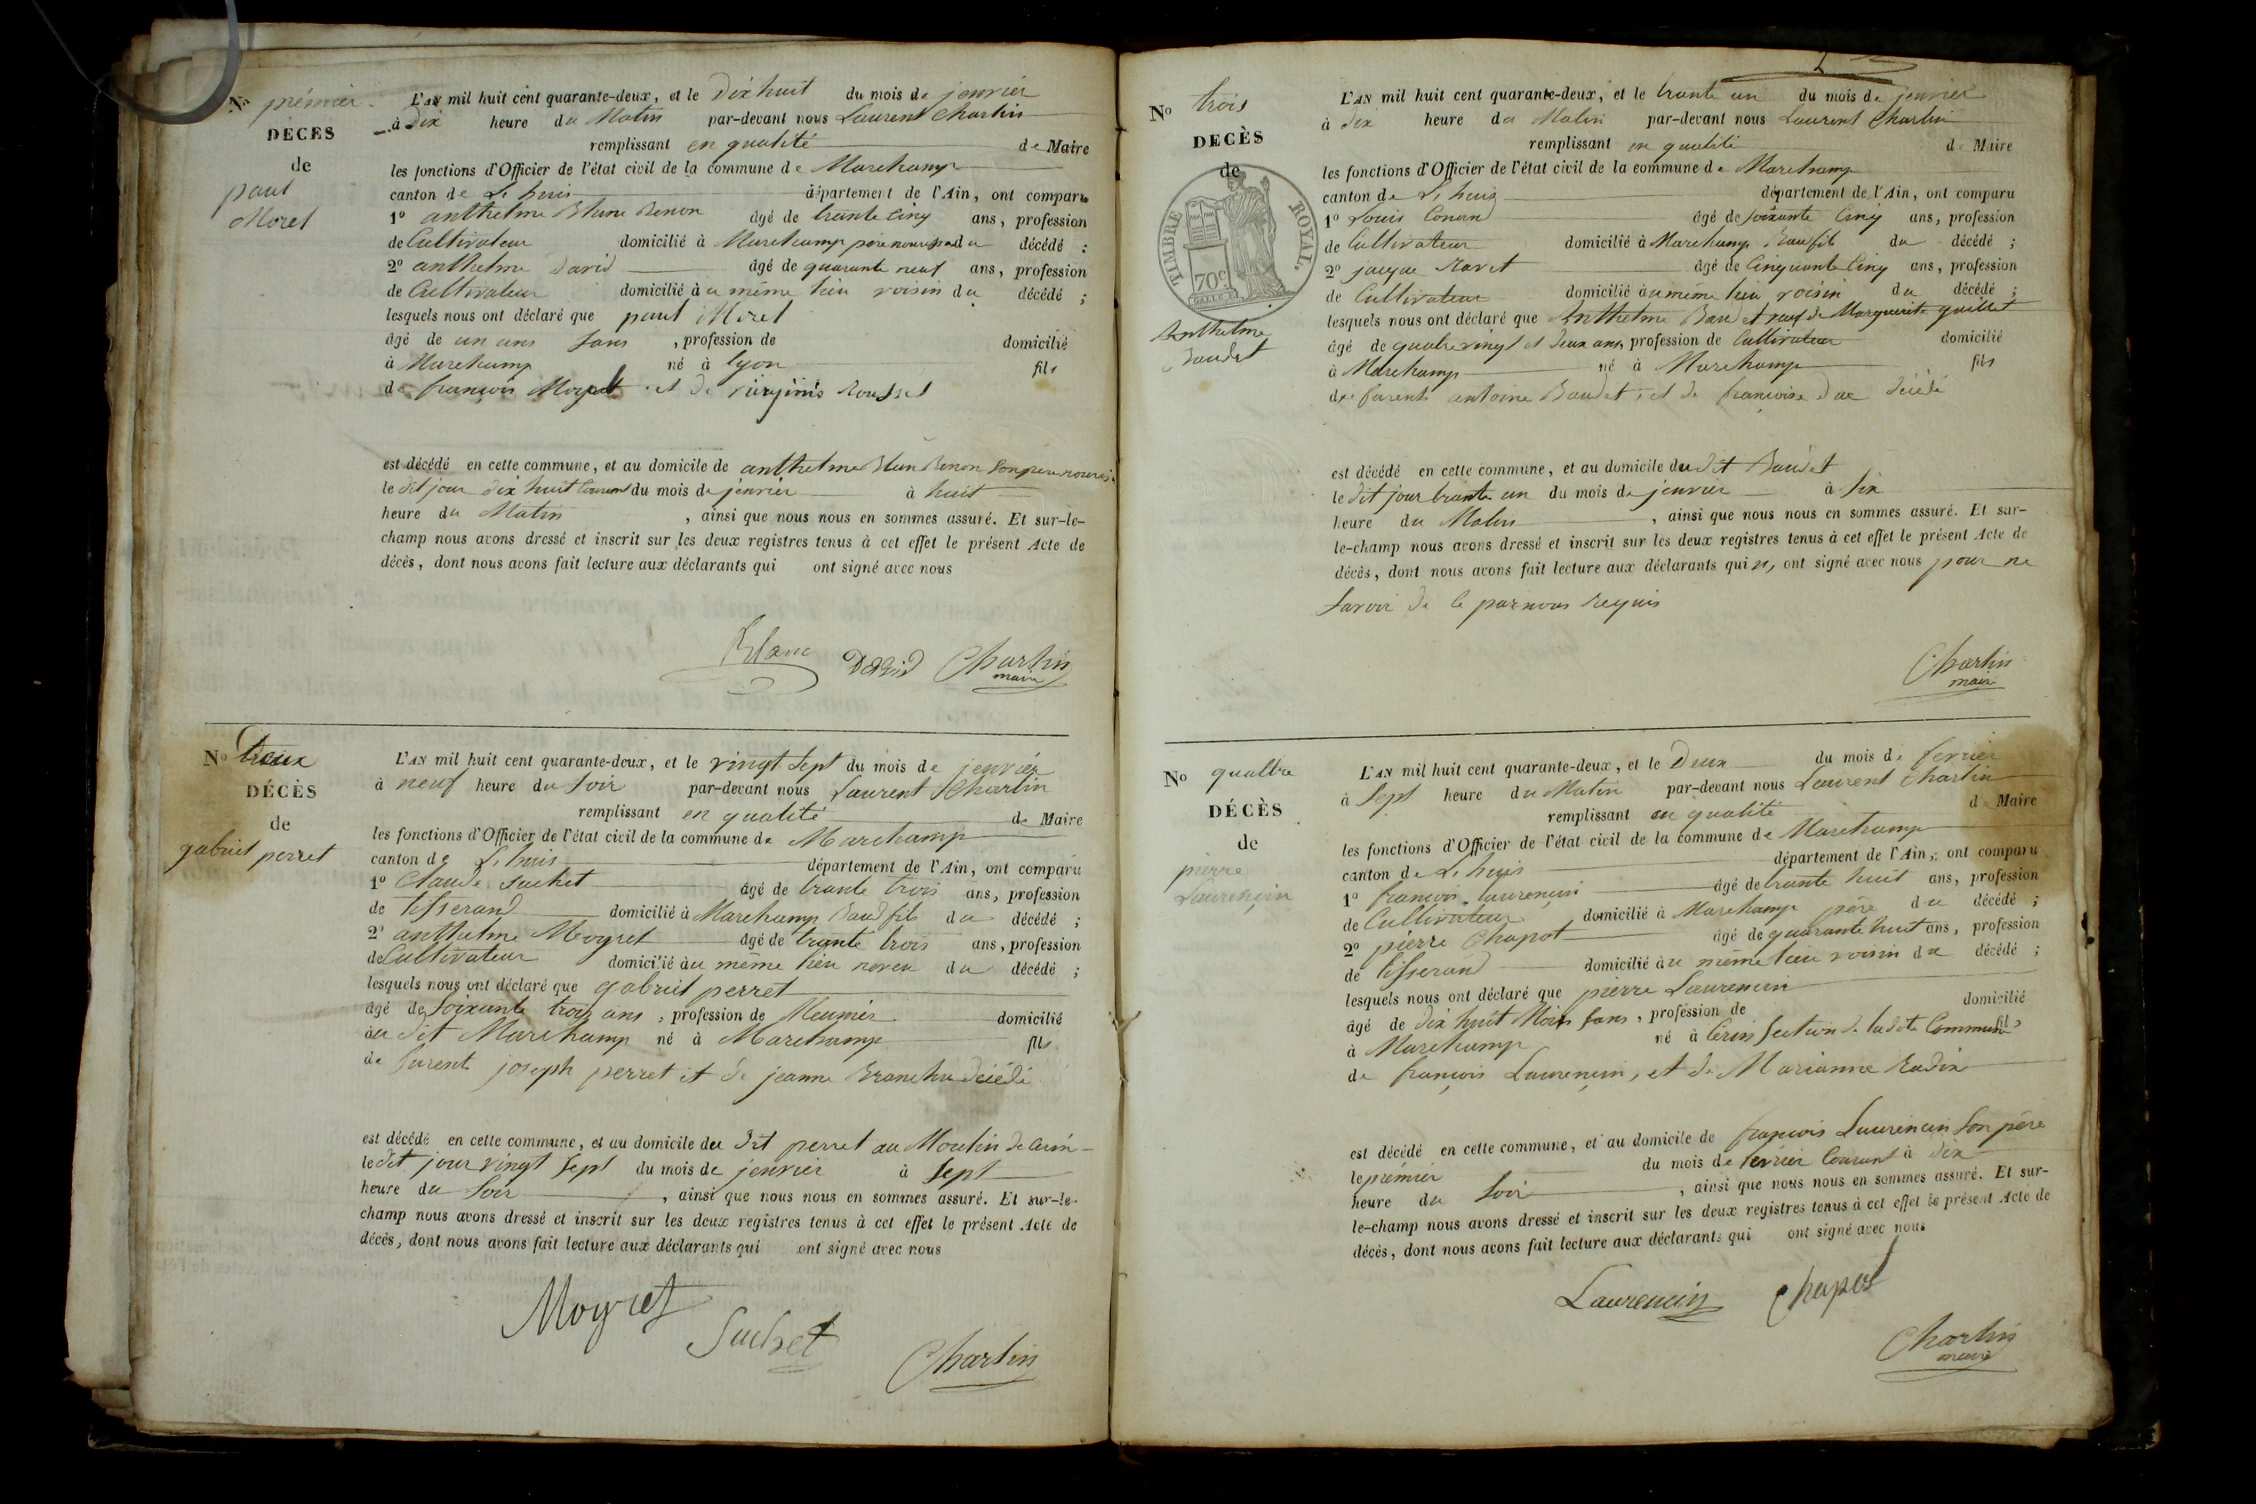 No prémier
DÉCÈS
de
paul
Moret
L'AN mil huit cent quarante-deux, et le dix huit du mois de jenvier
à Dix heure du Matin par-devant nous Laurent Charlin
remplissant en qualité de Maire
les fonctions d'Officier de l'état civil de la commune de Marchamp
canton de L'huis département de l'Ain, ont comparu
1º anthelme Blanc Benon âgé de trante Cinq ans, profession
de Cultivateur domicilié à Marchamp père du décédé ;
2º anthelme David âgé de quarante neuf ans, profession
de Cultivateur domicilié au même lieu voisin du décédé ;
lesquels nous ont déclaré que paul Moret
âgé de un ans Sans , profession de domicilié
à Marchamp né à lyon fils
de françois et de virginis Rousset
est décédé en cette commune, et au domicile de anthelme Blan Benon Son père
le dit jour dix huit Courant du mois de jenvier à huit
heure du Matin , ainsi que nous nous en sommes assuré. Et sur-le-
champ nous avons dressé et inscrit sur les deux registres tenus à cet effet le présent Acte de
décès, dont nous avons fait lecture aux déclarants qui ont signé avec nous
Blanc David Charlin
maire
No Deux
DÉCÈS
de
gabriel perret
L'AN mil huit cent quarante-deux, et le vingt Sept du mois de jenvier
à neuf heure du Soir par-devant nous Laurent Charlin
remplissant en qualité de Maire
les fonctions d'Officier de l'état civil de la commune de Marchamp
canton de L'huis département de l'Ain, ont comparu
1º Claude Suchet âgé de trante trois ans, profession
de tisserand domicilié à Marchamp Baufils du décédé ;
2º anthelme Moyret âgé de trante trois ans, profession
de Cultivateur domicilié au même lieu neveu du décédé ;
lesquels nous ont déclaré que gabriel perret
âgé de Soixante trois ans , profession de Meunier domicilié
au dit Marchamp né à Marchamp fils
de furent joseph perret et de jeanne décédé
est décédé en cette commune, et au domicile du dit perret au Moulin de
le dit jour vingt Sept du mois de jenvier à Sept
heure du Soir , ainsi que nous nous en sommes assuré. Et sur-le-
champ nous avons dressé et inscrit sur les deux registres tenus à cet effet le présent Acte de
décès, dont nous avons fait lecture aux déclarants qui ont signé avec nous
Moyret
Suchet
Charlin
No trois
DECÈS
de
TIMBRE ROYAL.
70c
Anthelme
Baudet
L'AN mil huit cent quarante-deux, et le trante un du mois de jenvier
à dix heure du Matin par-devant nous Laurent Charlin
remplissant en qualité de Maire
les fonctions d'Officier de l'état civil de la commune de Marchamp
canton de L'huis département de l'Ain, ont comparu
1º Louis Conand âgé de Soixante Cinq ans, profession
de Cultivateur domicilié à Marchamp Baufils du décédé ;
2º jacque Ravet âgé de Cinquante Cinq ans, profession
de Cultivateur domicilié au même lieu voisin du décédé ;
lesquels nous ont déclaré que Anthelme Baudet veuf de Marguerite quillet
âgé de quatre vingt et deux ans, profession de Cultivateur domicilié
à Marchamp né à Marchamp fils
de furent antoine Baudet, et de françoise décédé
est décédé en cette commune, et au domicile du dit Baudet
le dit jour trante un du mois de jenvier à Six
heure du Matin , ainsi que nous nous en sommes assuré. Et sur-
le-champ nous avons dressé et inscrit sur les deux registres tenus à cet effet le présent Acte de
décès, dont nous avons fait lecture aux déclarants qui n, ont signé avec nous pour ne
Savoir de ce par nous requis
Charlin
maire
No quattre
DÉCÈS
de
pierre
Laurençin
L'AN mil huit cent quarante-deux, et le Deux du mois de fevrier
à Sept heure du Matin par-devant nous Laurent Charlin
remplissant en qualité de Maire
les fonctions d'Officier de l'état civil de la commune de Marchamp
canton de L'huis département de l'Ain, ont comparu
1º françois Laurençin âgé de trante huit ans, profession
de Cultivateur domicilié à Marchamp père du décédé ;
2º pierre Chapot âgé de quarante huit ans, profession
de tisserand domicilié au même lieu voisin du décédé ;
lesquels nous ont déclaré que pierre Laurencin
âgé de dix huit Mois Sans , profession de domicilié
à Marchamp né à Cerin Section de ladite Commune fils
de françois Laurençin, et de Marianne Radix
est décédé en cette commune, et au domicile de françois Laurencin Son père
le prémier du mois de fevrier Courant à dix
heure du Soir , ainsi que nous nous en sommes assuré. Et sur-
le-champ nous avons dressé et inscrit sur les deux registres tenus à cet effet le présent Acte de
décès, dont nous avons fait lecture aux déclarants qui ont signé avec nous
Laurencin Chapot
Charlin
maire